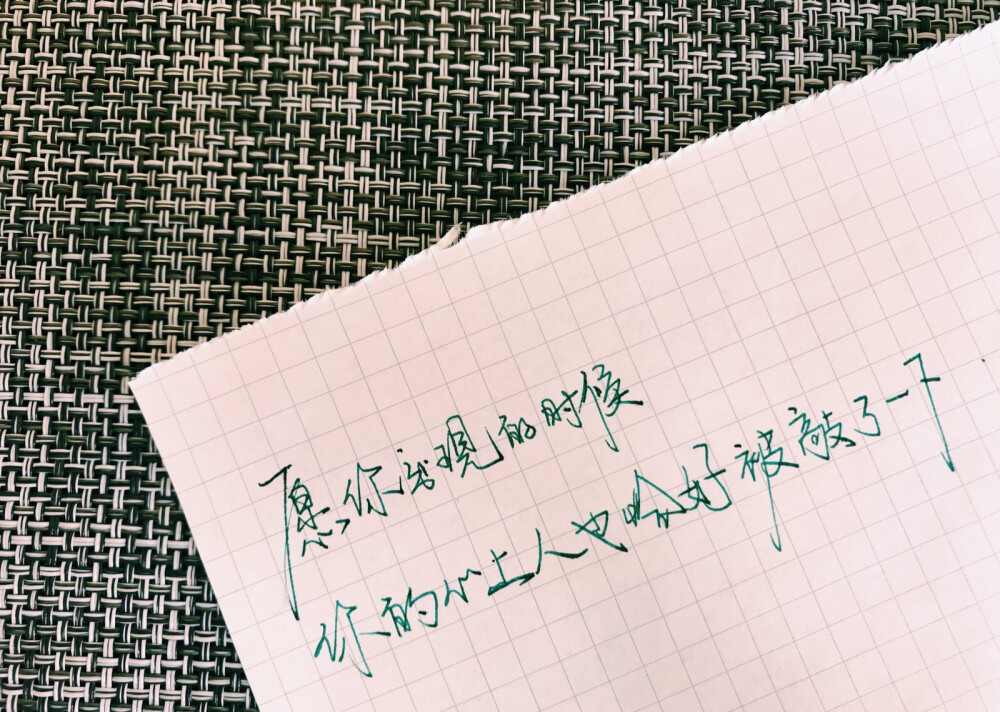 愿你出现的时候
你的心上人也恰好被敲了一下